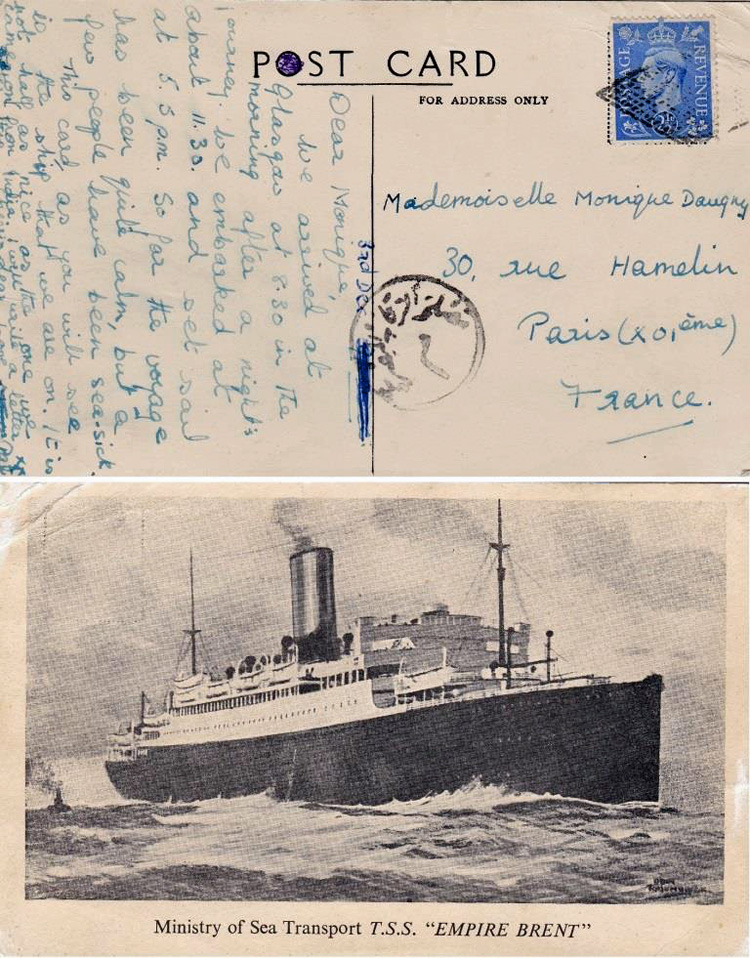 POST CARD
FOR ADDRESS ONLY
POSTAGE
REVENUE
2½D
3rd Dec
Dear Monique,
We arrived at
Glasgow at 8.30 in the
morning after a night's
journey. We embarked at
about 11.30. and set sail
at 5.5 pm. So far the voyage
has been quite calm, but a
few people have been sea-sick.
This card, as you will see
is the ship that we are on. It is
not half as nice as the one we
came on from India. I will write a letter
Mademoiselle Monique Daugny
30, rue Hamelin
Paris (XVIème)
France.
Ministry of Sea Transport T.S.S. "EMPIRE BRENT"